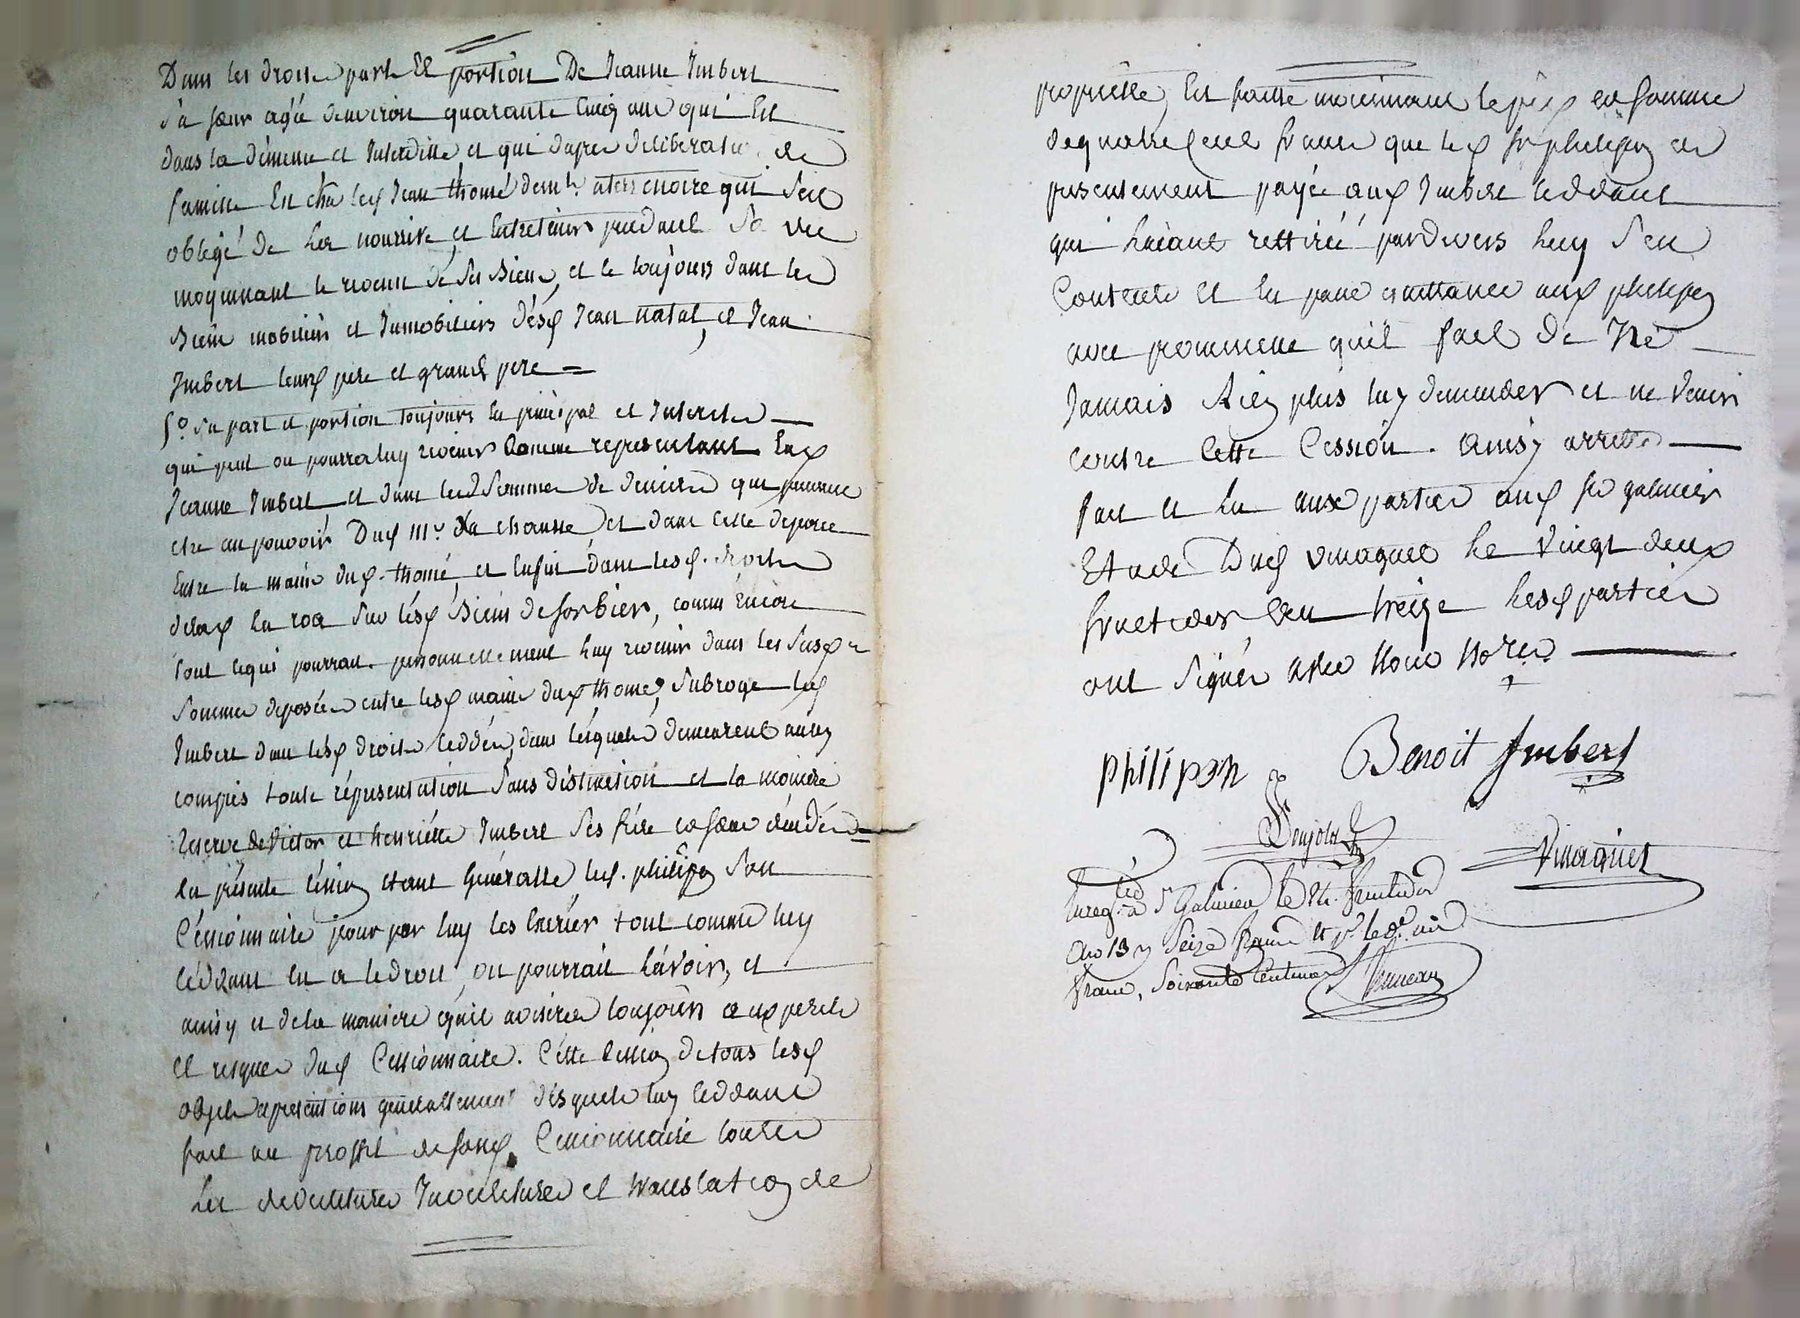 Dans les droits part Et portion De Jeanne Imbert
sa sœur agée denviron quarante cinq ans qui Est
dans la démence et Interditte, et qui dapres deliberation de
famille Est chez led Jean thomé qui sest
obligé de la nourrire et Entretenir pendant sa vie
moyennant le revenu de ses Biens, et ce toujours dans les
Biens mobiliers et Immobiliers desd Jean natal, et Jean
Imbert leurs pere et grand pere =
5.o sa part et portion toujours En principal et Interets
qui peut ou pourra luy revenir Comme representant Lad
Jeanne Imbert, et dans lesd sommes de deniers qui peuvent
etre au pouvoir Dud Mr La chausse, et dans celle deposée
Entre les mains dud. thomé, et Enfin dans lesd. droits
delad La roa sur lesd Biens de sorbier, comm Encore
tout cequi pourrait personnellement luy revenir dans les susd
sommes deposées entre lesd mains dud thomé, subroge led
Imbert dans lesd droits Ceddés, dans lesquels demeurent aussy
compris toute répresentation sans distinction et la moindre
reserve de Victor et henriette Imbert ses frére et sœur décédés =
La présente céssion etant Généralle led. philipon son
Céssionnaire pour par luy Les Exercer tout comme luy
Céddant En a le droit, ou pourrait L'avoir, et
ainsy et de la maniere qu'il avisera toujours aux perils
et risques dud Cessionnaire. Cette Cession de tous lesd
objets et pretentions generallement desquels luy Ceddant
fait au proffit de sond Cessionnaire toutes
Les devetitures Investitures et translation de
propriété, Est faitte moiennant le prix et somme
de quatre Cent francs que led sr philipon a
presentement payée aud Imbert Ceddant
qui L'aiant rettirée pardevers luy s'en
Contente et En passe quittance aud philipon
avec promesse qu'il fait de Ne
Jamais Rien plus luy demander et ne Venir
contre Cette Cession. ainsy arretté
fait et lu aux parties aud St galmier
Etude Dud vinagues le vingt deux
fructidor L'an treize lesd parties
ont signés avec Nous Nores
philipon Benoit Imbert
Poujolat
Vinagues
Enreg. à St Galmier le 24. fructidor
An 13 r. Seize francs et pr le d. un
franc, soixante Centimes